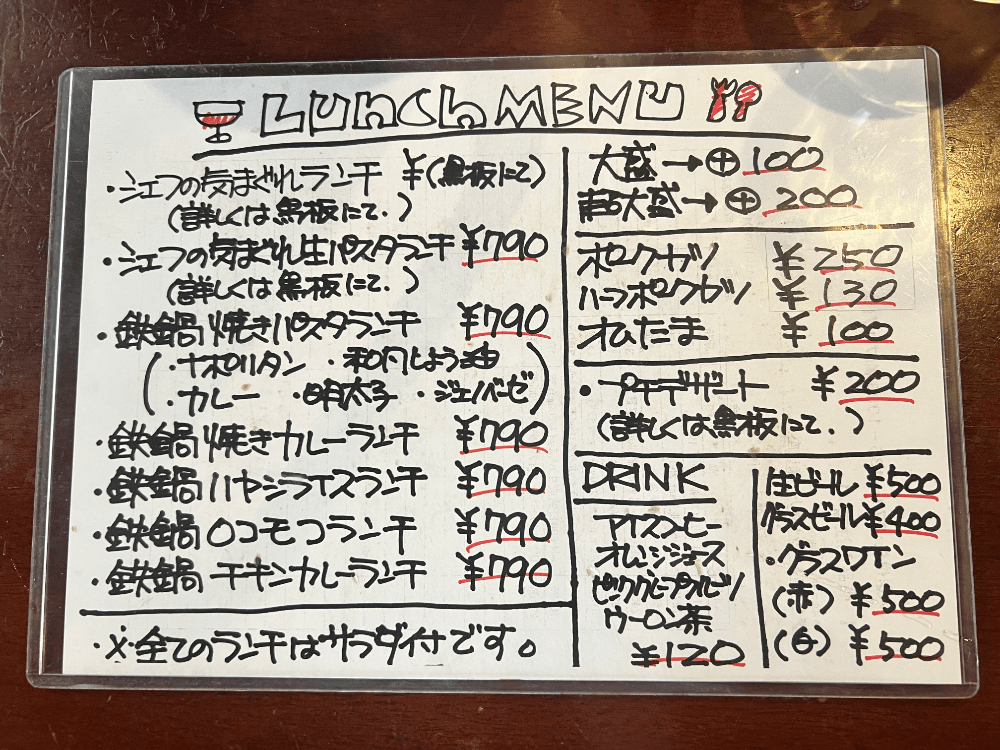 LUNCH MENU
・シェフの気まぐれランチ ¥(黒板にて)
(詳しくは黒板にて.)
・シェフの気まぐれ生パスタランチ ¥790
(詳しくは黒板にて.)
・鉄鍋焼きパスタランチ ¥790
(・ナポリタン ・和風しょう油
・カレー ・明太子 ・ジェノベーゼ)
・鉄鍋焼きカレーランチ ¥790
・鉄鍋ハヤシライスランチ ¥790
・鉄鍋ロコモコランチ ¥790
・鉄鍋チキンカレーランチ ¥790
・※・全てのランチはサラダ付です。
大盛→⊕100
超大盛→⊕200
ポークカツ ¥250
ハーフポークカツ ¥130
オムたま ¥100
・プチデザート ¥200
(詳しくは黒板にて.)
DRINK
アイスコーヒー
オレンジジュース
ピンクグレープフルーツ
ウーロン茶
¥120
生ビール ¥500
グラスビール ¥400
・グラスワイン
(赤) ¥500
(白) ¥500